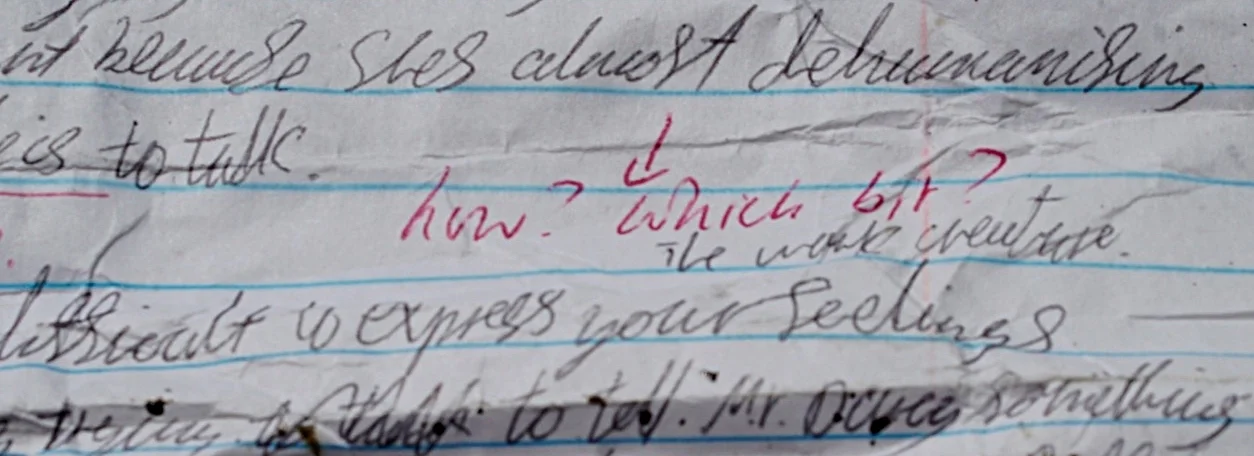 because shes almost dehumanising
is to talk.
how? which bit?
The work creature.
difficult to express your feelings
trying to to tell. Mr. something